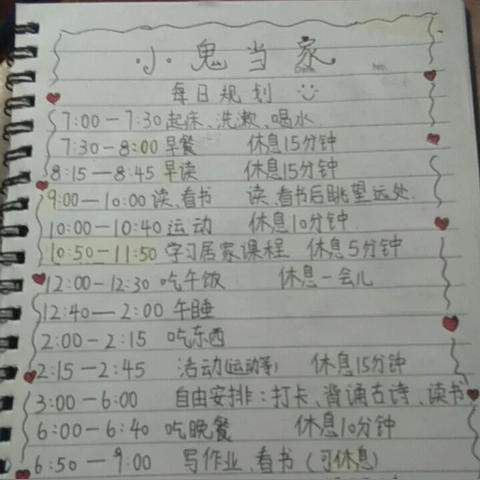 小鬼当家
No.
每日规划
7:00-7:30 起床、洗漱、喝水
7:30-8:00 早餐 休息15分钟
8:15-8:45 早读 休息15分钟
9:00-10:00 读、看书 读、看书后眺望远处.
10:00-10:40 运动 休息10分钟
10:50-11:50 学习居家课程 休息5分钟
12:00-12:30 吃午饭 休息一会儿
12:40-2:00 午睡
2:00-2:15 吃东西
2:15-2:45 活动(运动等) 休息15分钟
3:00-6:00 自由安排:打卡、背诵古诗、读书
6:00-6:40 吃晚餐 休息10分钟
6:50-9:00 写作业、看书(可休息)